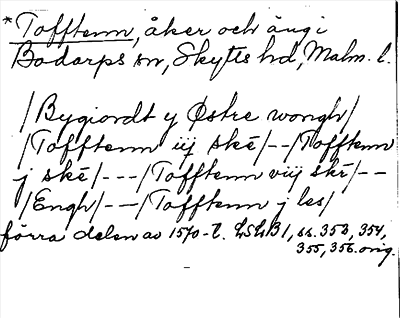 *Tofftenn, åker och äng i
Bodarps sn, Skytts hd, Malm. l.
/Bygiordt y Østre wongh/
/Tofftenn iij ske/--/Tofftenn
j ske/---/Tofftenn viij ske/--
/Engh/--/Tofftenn j les/
förra delen av 1570-t. LSLB1, ss. 353, 354,
355, 356. orig.